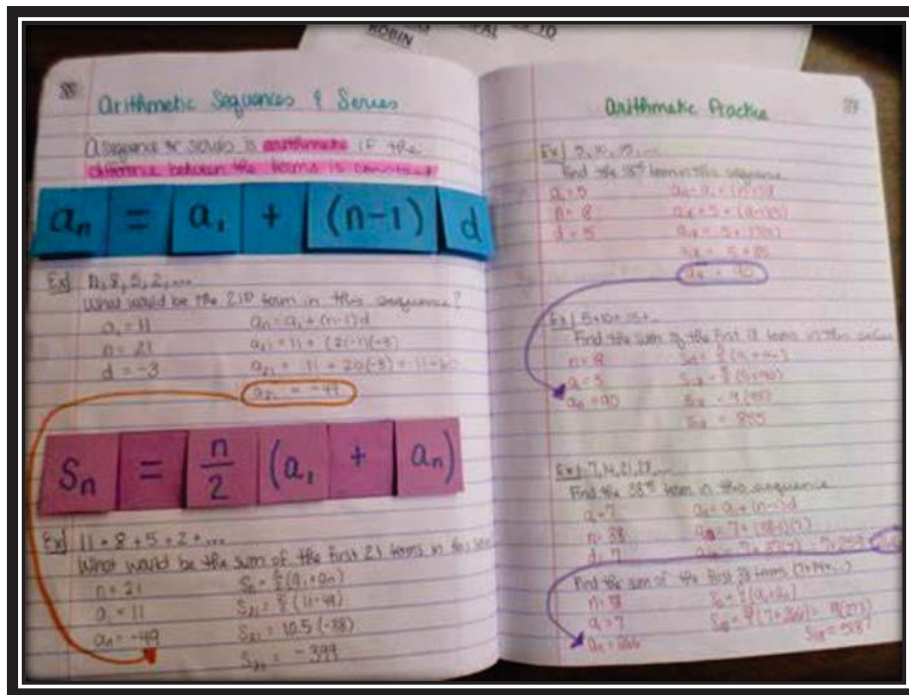 ROBIN
TO
88
Arithmetic Sequences & Series
a sequence or series is arithmetic if the
difference between the terms is constant
an = a1 + (n-1) d
Ex) 11, 8, 5, 2, ...
What would be the 21st term in this sequence?
a1 = 11 an = a1 + (n-1)d
n = 21 a21 = 11 + (21-1)(-3)
d = -3 a21 = 11 + 20(-3) = 11-60
a21 = -49
Sn = n/2 (a1 + an)
Ex) 11 + 8 + 5 + 2 + ...
What would be the sum of the first 21 terms in this
n = 21 Sn = n/2 (a1 + an)
a1 = 11 S21 = (11-49)
an = -49 S21 = 10.5 (-38)
S21 = -399
Arithmetic Practice
89
Ex) 5, 10, 15, ...
Find the 18th term in this sequence
a1 = 5 an = a1 + (n-1)d
d = 5
= 5 + 85
= 90
Ex) 5+10+15+...
Find the sum of the first 18 terms in this series
Sn = n/2 (a1 + an)
a1 = 5 (5+90)
an = 90 = 9 (95)
= 855
Ex) 7, 14, 21, 28, ...
Find the 38th term in this sequence
a1 = 7 an = a1 + (n-1)d
n = 38 = 7 + (38-1)(7)
d = 7 = 7 + 37(7) = 7+259
Find the sum of the first 38 terms (7+14+...)
n = 38 Sn = n/2 (a1 + an)
a1 = 7 (7+266) = (273)
an = 266